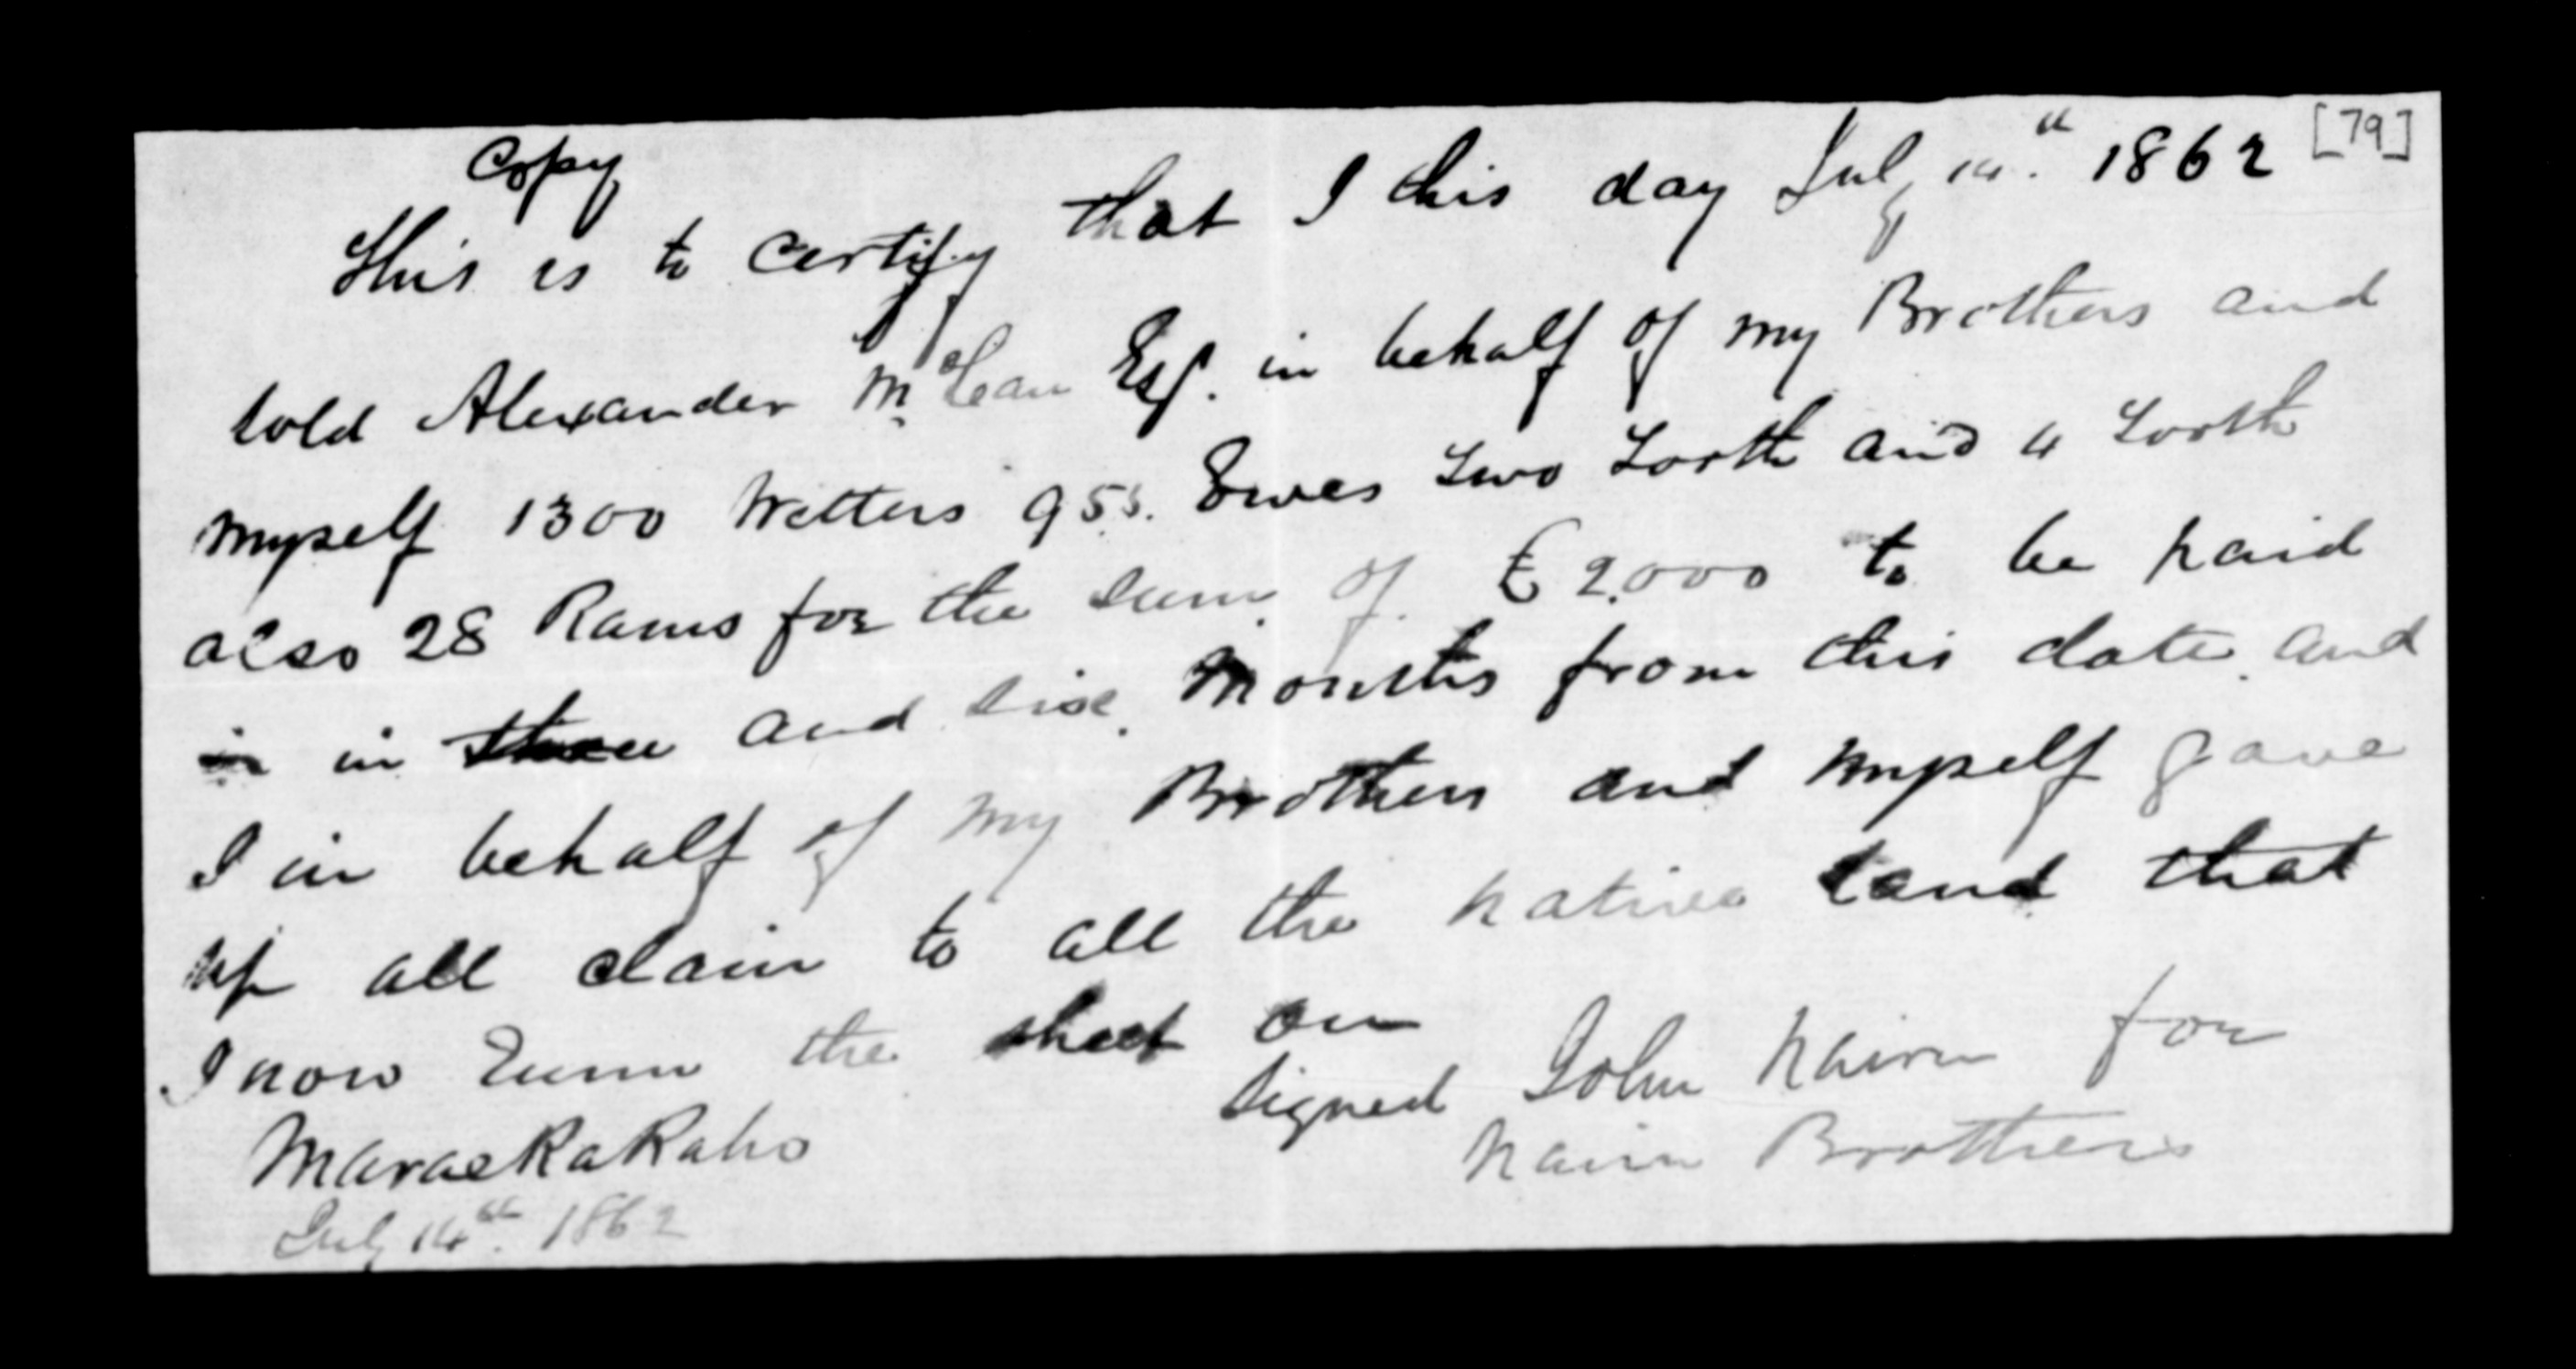 Copy [79]
This is to certify that I this day July 14th. 1862
sold Alexander McLean Esq. in behalf of my Brothers and
myself 1300 Wetters 955. Ewes two tooth and 4 tooth
also 28 Rams for the sum of £2,000 to be paid
in in three and six Months from this date and
I in behalf of my Brothers and myself gave
up all claim to all the native land that
I now runn the sheet on
signed John Nairn for
Nairn Brothers
Maraekakaho
July 14th. 1862